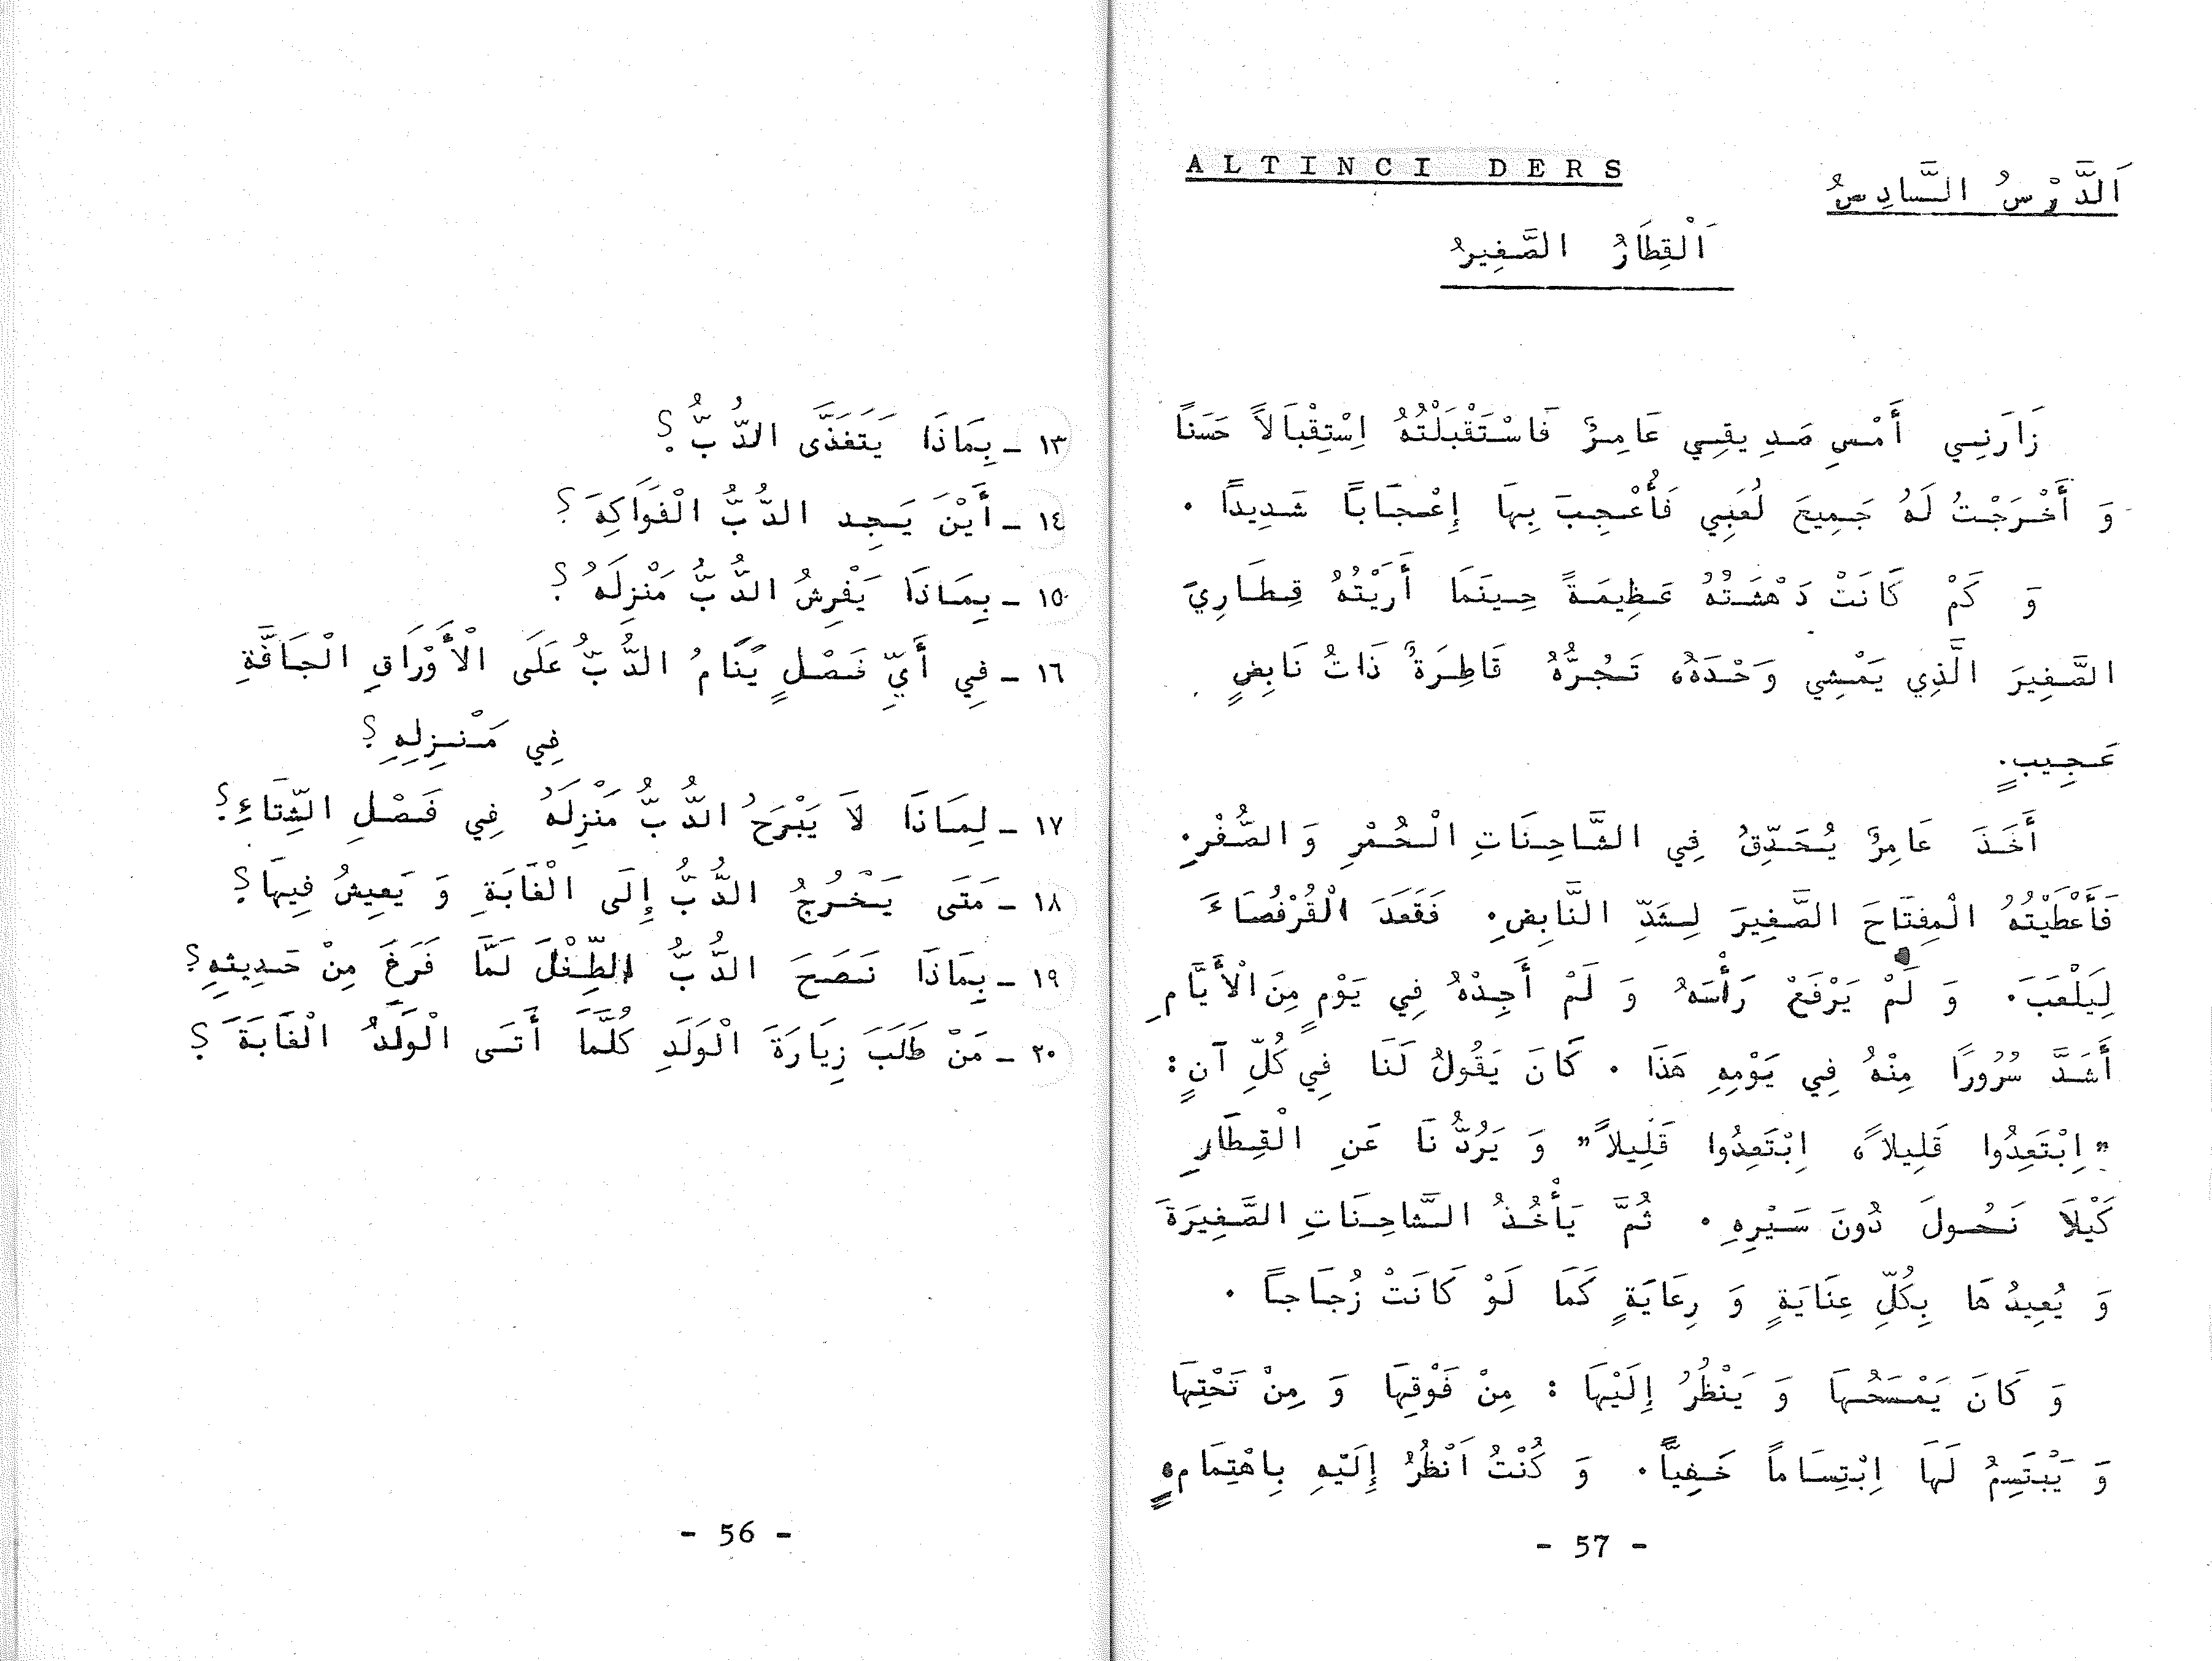 ١٣ - بِمَاذَا يَتَغَذَّى الدُّبُّ ؟
١٤ - أَيْنَ يَجِد الدُّبُّ الْفَوَاكِهَ ؟
١٥ - بِمَاذَا يَفْرِشُ الدُّبُّ مَنْزِلَهُ ؟
١٦ - فِي أَيِّ فَصْلٍ يَنَامُ الدُّبُّ عَلَى الْأَوْرَاقِ الْجَافَّةِ
فِي مَنْزِلِهِ ؟
١٧ - لِمَاذَا لاَ يَبْرَحُ الدُّبُّ مَنْزِلَهُ فِي فَصْلِ الشِّتَاءِ ؟
١٨ - مَتَى يَخْرُجُ الدُّبُّ إِلَى الْغَابَةِ وَ يَعِيشُ فِيهَا ؟
١٩ - بِمَاذَا نَصَحَ الدُّبُّ الطِّفْلَ لَمَّا فَرَغَ مِنْ حَدِيثِهِ ؟
٢٠ - مَنْ طَلَبَ زِيَارَةَ الْوَلَدِ كُلَّمَا أَتَى الْوَلَدُ الْغَابَةَ ؟
- 56 -
ALTINCI DERS
اَلدَّرْسُ السَّادِسُ
اَلْقِطَارُ الصَّغِيرُ
زَارَنِي أَمْسِ صَدِيقِي عَامِرٌ فَاسْتَقْبَلْتُهُ اِسْتِقْبَالاً حَسَنًا
وَ أَخْرَجْتُ لَهُ جَمِيعَ لُعَبِي فَأُعْجِبَ بِهَا إِعْجَابًا شَدِيدًا .
وَ كَمْ كَانَتْ دَهْشَتُهُ عَظِيمَةً حِينَمَا أَرَيْتُهُ قِطَارِيَ
الصَّغِيرَ الَّذِي يَمْشِي وَحْدَهُ، تَجُرُّهُ قَاطِرَةٌ ذَاتُ نَابِضٍ
عَجِيبٍ.
أَخَذَ عَامِرٌ يُحَدِّقُ فِي الشَّاحِنَاتِ الْحُمْرِ وَ الصُّفْرِ.
فَأَعْطَيْتُهُ الْمِفتَاحَ الصَّغِيرَ لِشَدِّ النَّابِضِ. فَقَعَدَ الْقُرْفُصَاءَ
لِيَلْعَبَ. وَ لَمْ يَرْفَعْ رَأْسَهُ وَ لَمْ أَجِدْهُ فِي يَوْمٍ مِنَ الْأَيَّامِ
أَشَدَّ سُرُورًا مِنْهُ فِي يَوْمِهِ هَذَا . كَانَ يَقُولُ لَنَا فِي كُلِّ آنٍ :
" اِبْتَعِدُوا قَلِيلاً، اِبْتَعِدُوا قَلِيلاً " وَ يَرُدُّنَا عَنِ الْقِطَارِ
كَيْلاَ نَحُولَ دُونَ سَيْرِهِ . ثُمَّ يَأْخُذُ الشَّاحِنَاتِ الصَّغِيرَةَ
وَ يُعِيدُهَا بِكُلِّ عِنَايَةٍ وَ رِعَايَةٍ كَمَا لَوْ كَانَتْ زُجَاجاً .
وَ كَانَ يَمْسَحُهَا وَ يَنْظُرُ إِلَيْهَا : مِنْ فَوْقِهَا وَ مِنْ تَحْتِهَا
وَ يَبْتَسِمُ لَهَا اِبْتِسَاماً خَفِيّاً. وَ كُنْتُ اَنْظُرُ إِلَيْهِ بِاهْتِمَامٍ،
- 57 -